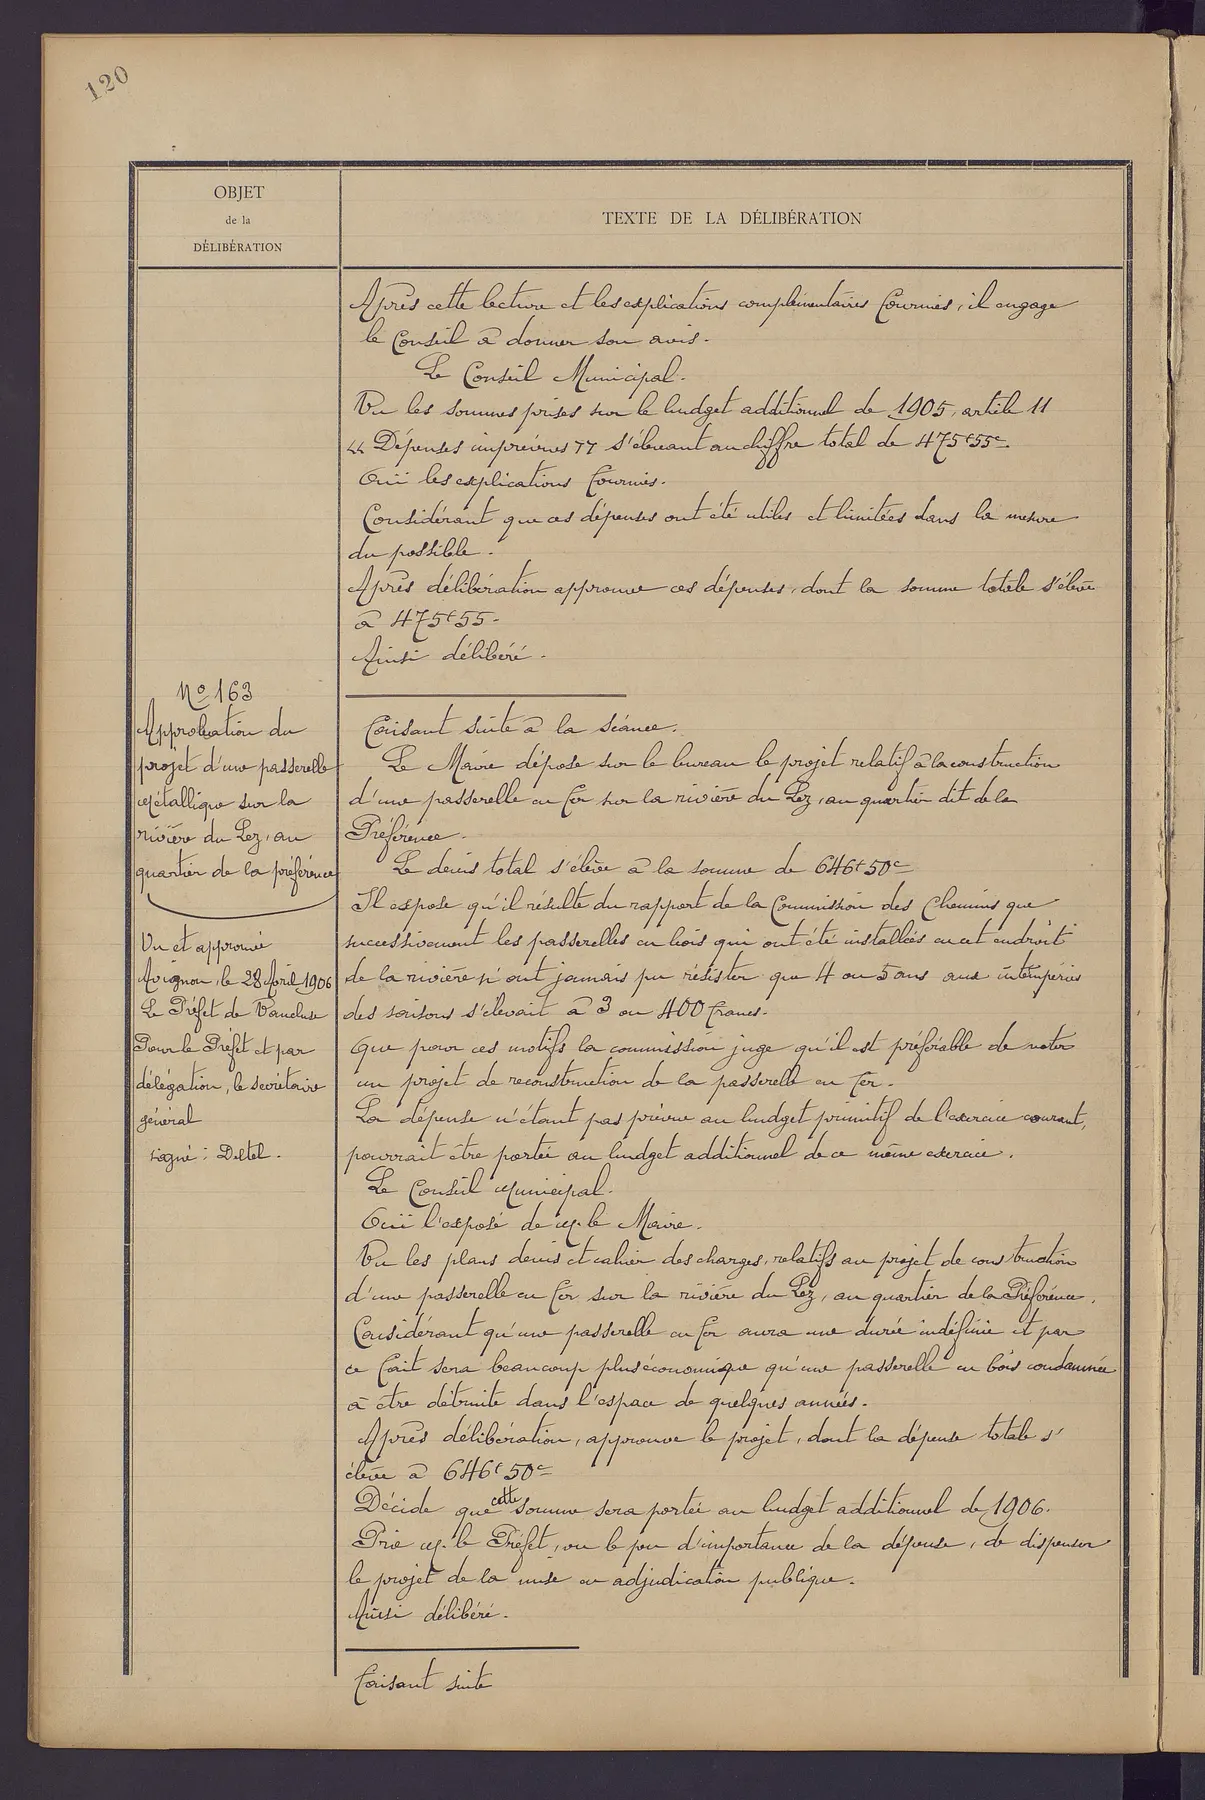 120
OBJET
de la
DÉLIBÉRATION
TEXTE DE LA DÉLIBÉRATION
Après cette lecture et les explications complémentaires fournies, il engage
le Conseil à donner son avis.
Le Conseil Municipal.
Vu les sommes prises sur le budget additionnel de 1905, article 11
" Dépenses imprévues " s'élevant au chiffre total de 475f55c
Ouï les explications fournies.
Considérant que ces dépenses ont été utiles et limitées dans la mesure
du possible.
Après délibération approuve ces dépenses, dont la somme totale s'élève
à 475f55.
Ainsi délibéré.
No 163
Approbation du
projet d'une passerelle
métallique sur la
rivière du Lez, au
quartier de la préférence
Vu et approuvé
Avignon, le 28 Avril 1906
Le Préfet de Vaucluse
Pour le Préfet et par
délégation, le secrétaire
général
signé : Deltel.
Faisant suite à la séance.
Le Maire dépose sur le bureau le projet relatif à la construction
d'une passerelle en fer sur la rivière du Lez, au quartier dit de la
Préférence.
Le devis total s'élève à la somme de 646f50c
Il expose qu'il résulte du rapport de la Commission des Chemins que
successivement les passerelles en bois qui ont été installées en cet endroit
de la rivière n'ont jamais pu résister que 4 ou 5 ans aux intempéries
des saisons s'élevait à 3 ou 400 francs.
Que pour ces motifs la commission juge qu'il est préférable de voter
un projet de reconstruction de la passerelle en fer.
La dépense n'étant pas prévue au budget primitif de l'exercice courant,
pourrait être portée au budget additionnel de ce même exercice.
Le Conseil Municipal.
Ouï l'exposé de M. le Maire.
Vu les plans devis et cahier des charges, relatifs au projet de construction
d'une passerelle en fer sur la rivière du Lez, au quartier de la Préférence.
Considérant qu'une passerelle en fer aura une durée indéfinie et par
ce fait sera beaucoup plus économique qu'une passerelle en bois condamnée
à être détruite dans l'espace de quelques années.
Après délibération, approuve le projet, dont la dépense totale s'
élève à 646f50c
Décide que cette somme sera portée au budget additionnel de 1906.
Prie M. le Préfet, vu le peu d'importance de la dépense, de dispenser
le projet de la mise en adjudication publique.
Ainsi délibéré.
Faisant suite